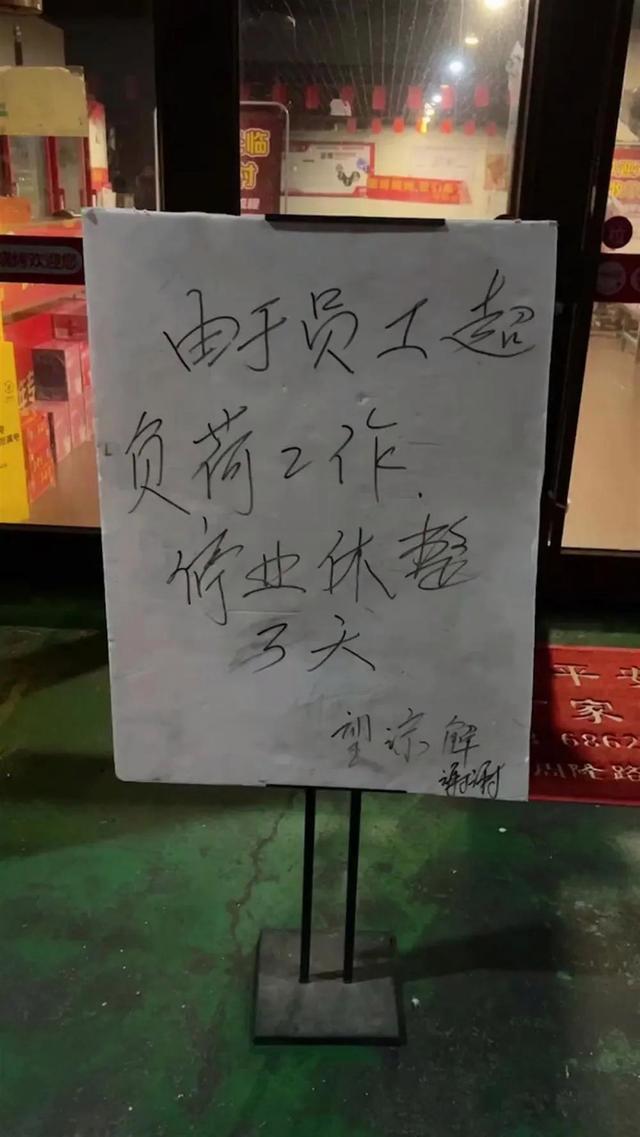 由于员工超
负荷工作.
停业休整
3天
望谅解
谢谢
临
时
欢迎您
平安
家
6862
隆路